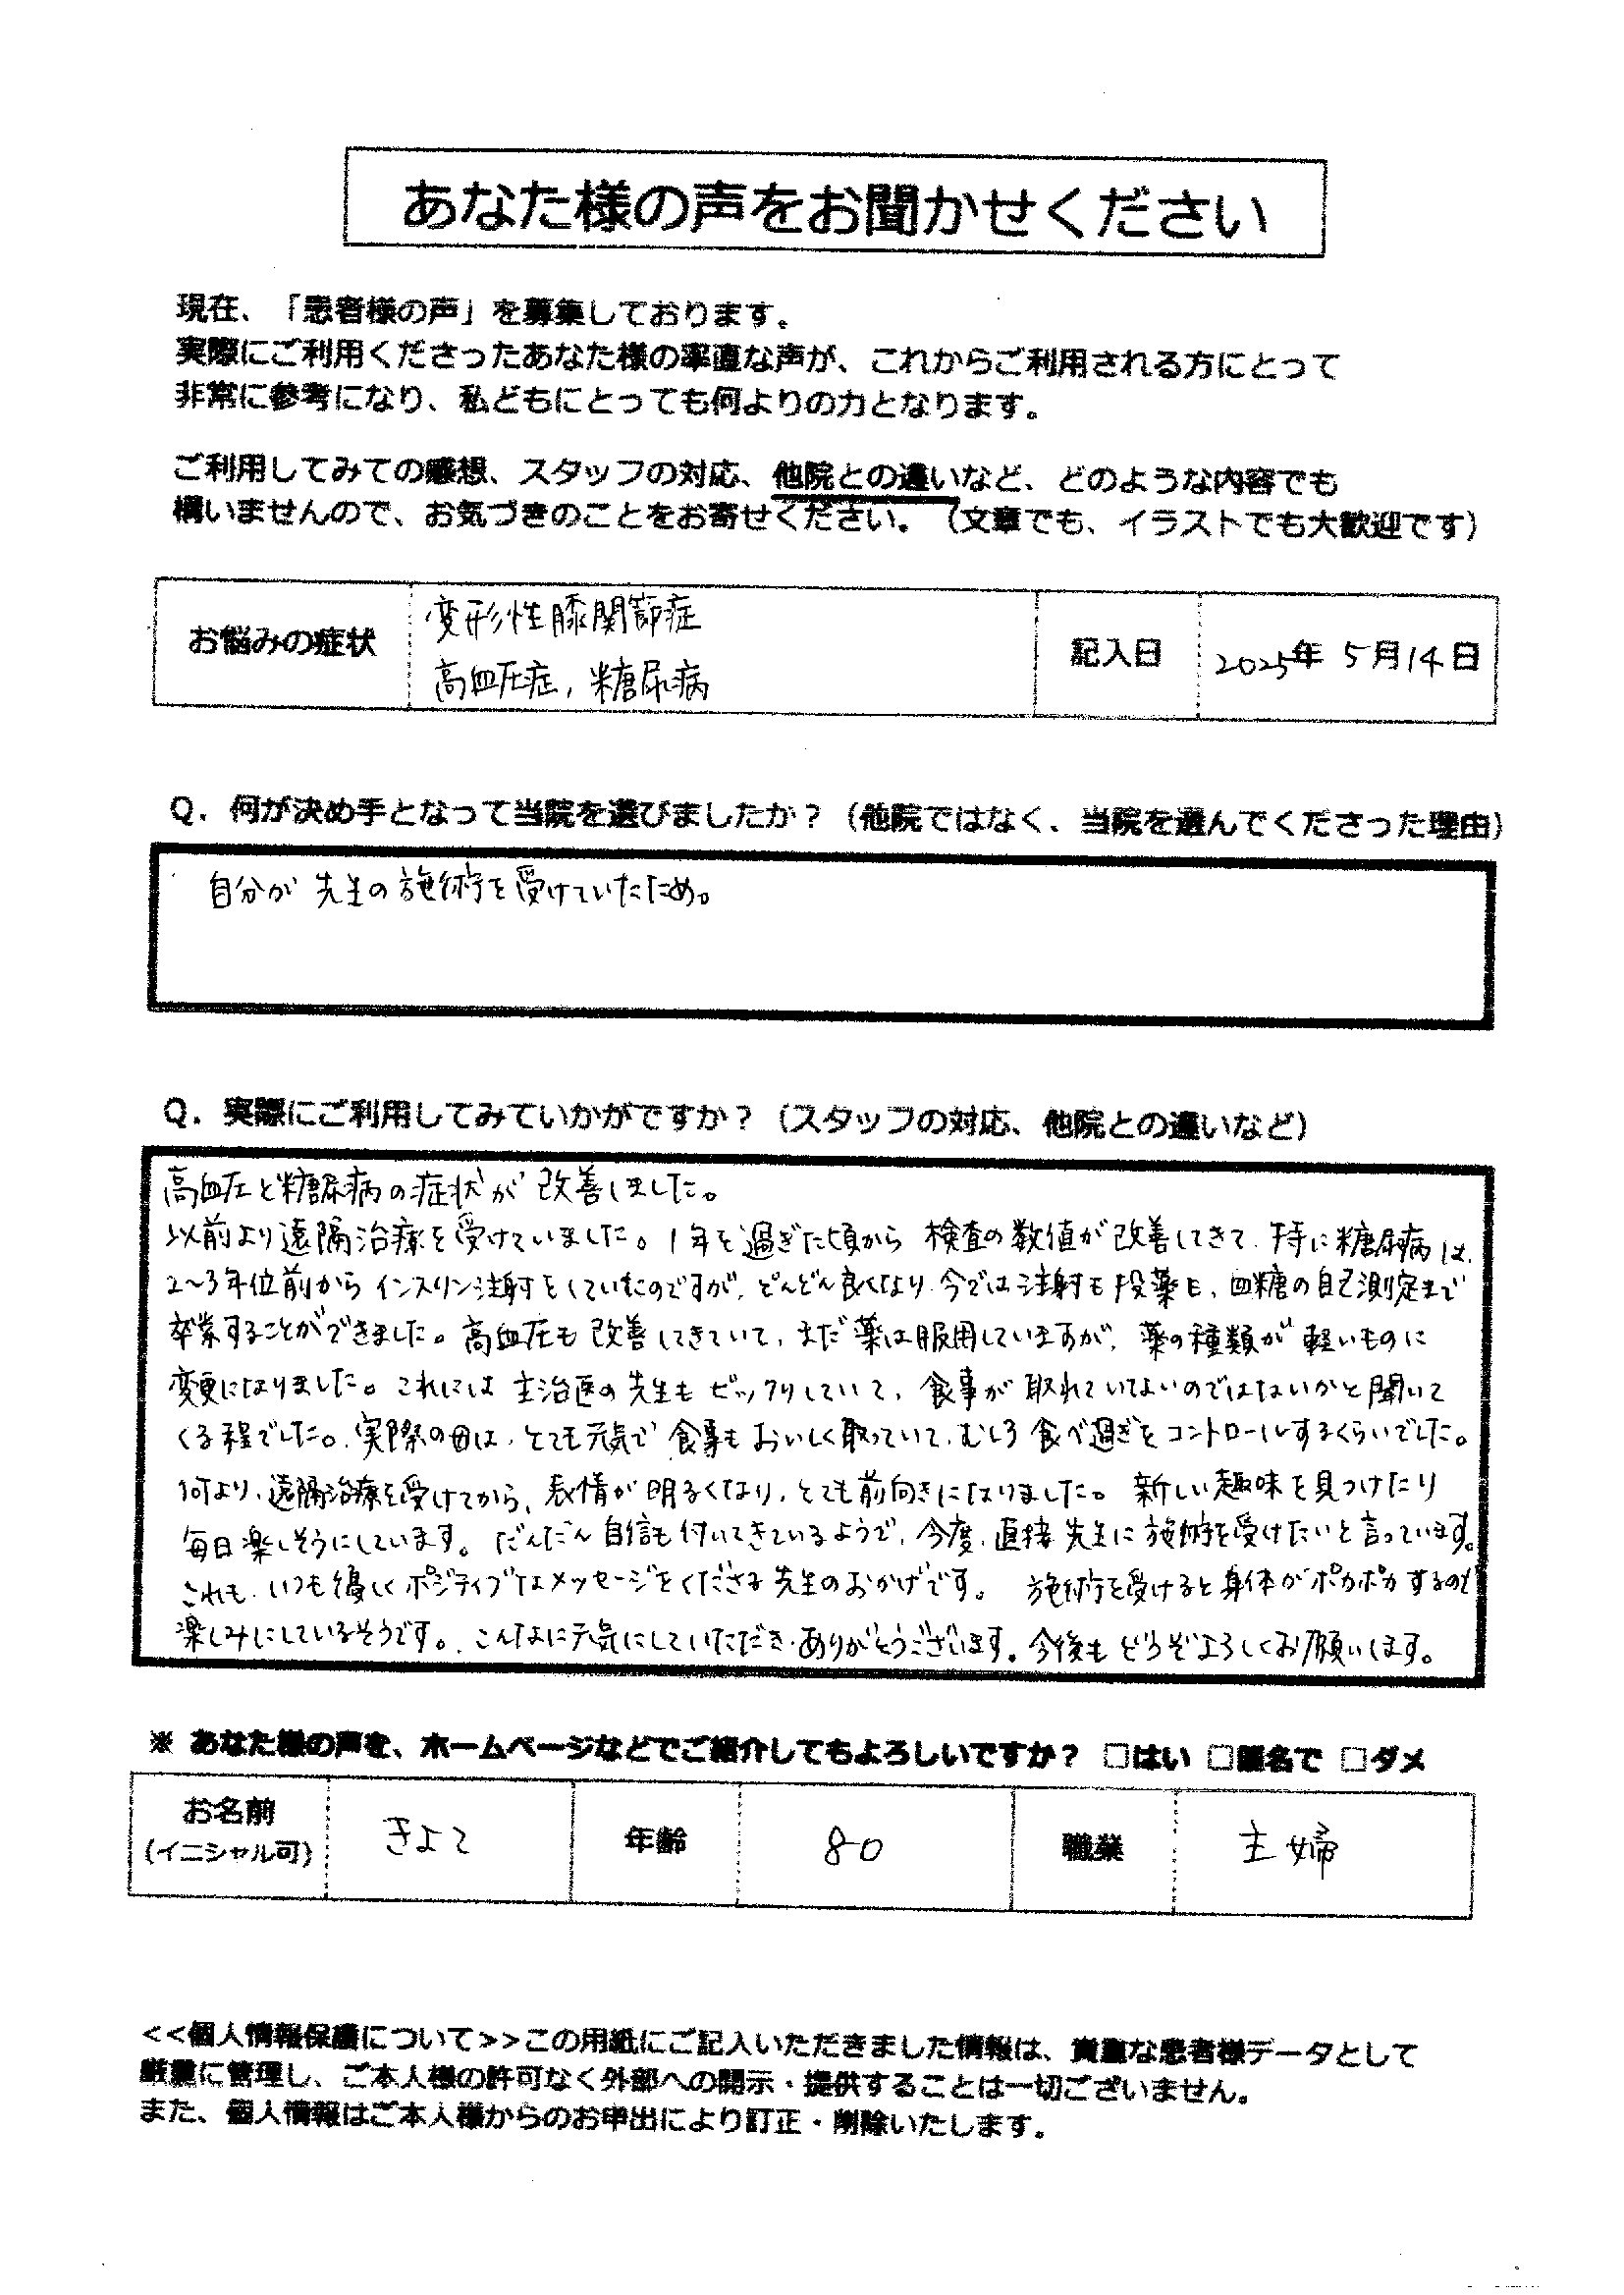 あなた様の声をお聞かせください
現在、「患者様の声」を募集しております。
実際にご利用くださったあなた様の率直な声が、これからご利用される方にとって
非常に参考になり、私どもにとっても何よりの力となります。
ご利用してみての感想、スタッフの対応、他院との違いなど、どのような内容でも
構いませんので、お気づきのことをお寄せください。（文章でも、イラストでも大歓迎です）
お悩みの症状
変形性膝関節症
高血圧症, 糖尿病
記入日
2025年 5月14日
Q. 何が決め手となって当院を選びましたか？（他院ではなく、当院を選んでくださった理由）
自分が先生の施術を受けていたため。
Q. 実際にご利用してみていかがですか？（スタッフの対応、他院との違いなど）
高血圧と糖尿病の症状が改善しました。
以前より遠隔治療を受けていました。1年を過ぎた頃から検査の数値が改善してきて、特に糖尿病は、
2〜3年位前からインスリン注射をしていたのですが、どんどん良くなり、今では注射も投薬も、血糖の自己測定まで
卒業することができました。高血圧も改善してきていて、まだ薬は服用していますが、薬の種類が軽いものに
変更になりました。これには主治医の先生もビックリしていて、食事が取れていないのではないかと聞いて
くる程でした。実際の母は、とても元気で食事もおいしく取っていて、むしろ食べ過ぎをコントロールするくらいでした。
何より、遠隔治療を受けてから、表情が明るくなり、とても前向きになりました。新しい趣味を見つけたり
毎日楽しそうにしています。だんだん自信も付いてきているようで、今度、直接先生に施術を受けたいと言っています。
これも、いつも優しくポジティブなメッセージをくださる先生のおかげです。 施術を受けると身体がポカポカするのを
楽しみにしているそうです。こんなに元気にしていただき、ありがとうございます。今後もどうぞよろしくお願いします。
※ あなた様の声を、ホームページなどでご紹介してもよろしいですか？ □はい □匿名で □ダメ
お名前
(イニシャル可)
きよこ
年齢
80
職業
主婦
<<個人情報保護について>>この用紙にご記入いただきました情報は、貴重な患者様データとして
厳重に管理し、ご本人様の許可なく外部への開示・提供することは一切ございません。
また、個人情報はご本人様からのお申出により訂正・削除いたします。